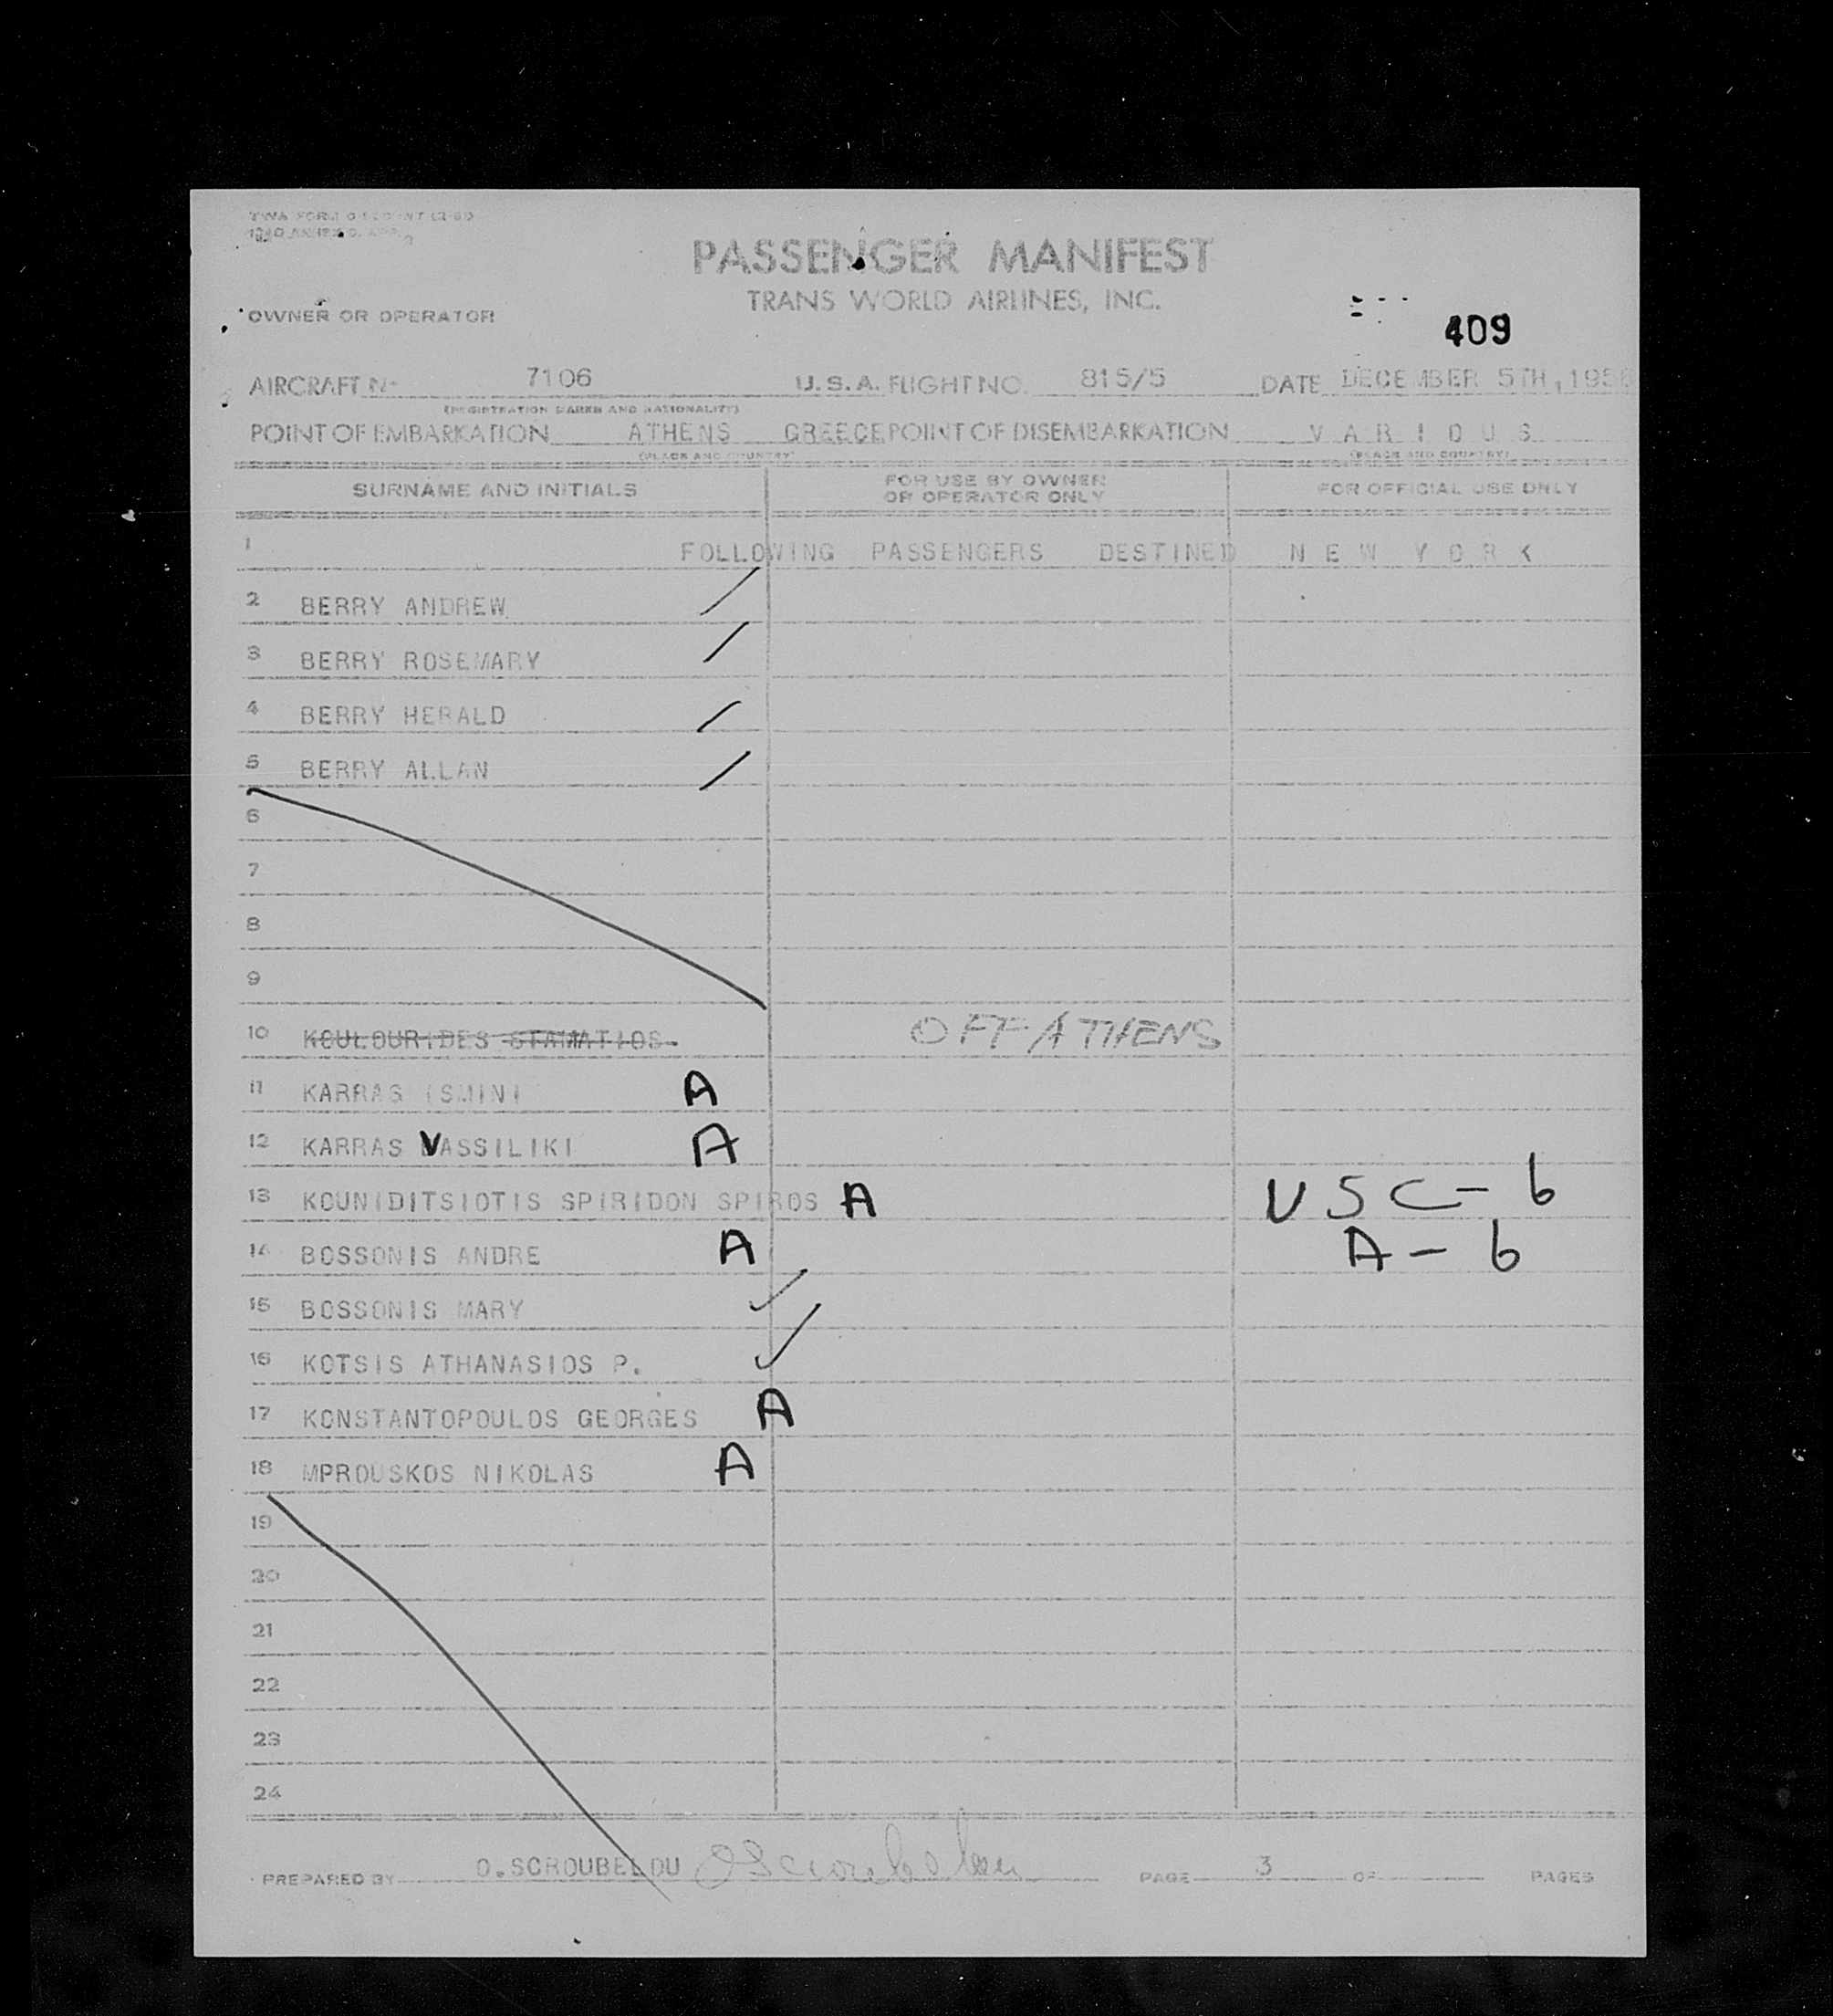 TWA FORM
PASSENGER MANIFEST
TRANS WORLD AIRLINES, INC.
OWNER OR OPERATOR
409
AIRCRAFT No 7106 U.S.A. FLIGHT NO. 815/5 DATE DECEMBER 5TH, 195
(REGISTRATION MARKS AND NATIONALITY)
POINT OF EMBARKATION ATHENS GREECE POINT OF DISEMBARKATION V A R I O U S
(PLACE AND COUNTRY) (PLACE AND COUNTRY)
SURNAME AND INITIALS FOR USE BY OWNER OR OPERATOR ONLY FOR OFFICIAL USE ONLY
1 FOLLOWING PASSENGERS DESTINED N E W Y O R K
2 BERRY ANDREW
3 BERRY ROSEMARY
4 BERRY HERALD
5 BERRY ALLAN
6
7
8
9
10 KOULOURIDES STAMATIOS. OFF ATHENS
11 KARRAS ISMINI A
12 KARRAS VASSILIKI A
13 KOUNIDITSIOTIS SPIRIDON SPIROS A USC - 6
14 BOSSONIS ANDRE A A - 6
15 BOSSONIS MARY ✓
16 KOTSIS ATHANASIOS P. ✓
17 KONSTANTOPOULOS GEORGES A
18 MPROUSKOS NIKOLAS A
19
20
21
22
23
24
PREPARED BY O.SCROUBELOU OScroubelou PAGE 3 OF PAGES